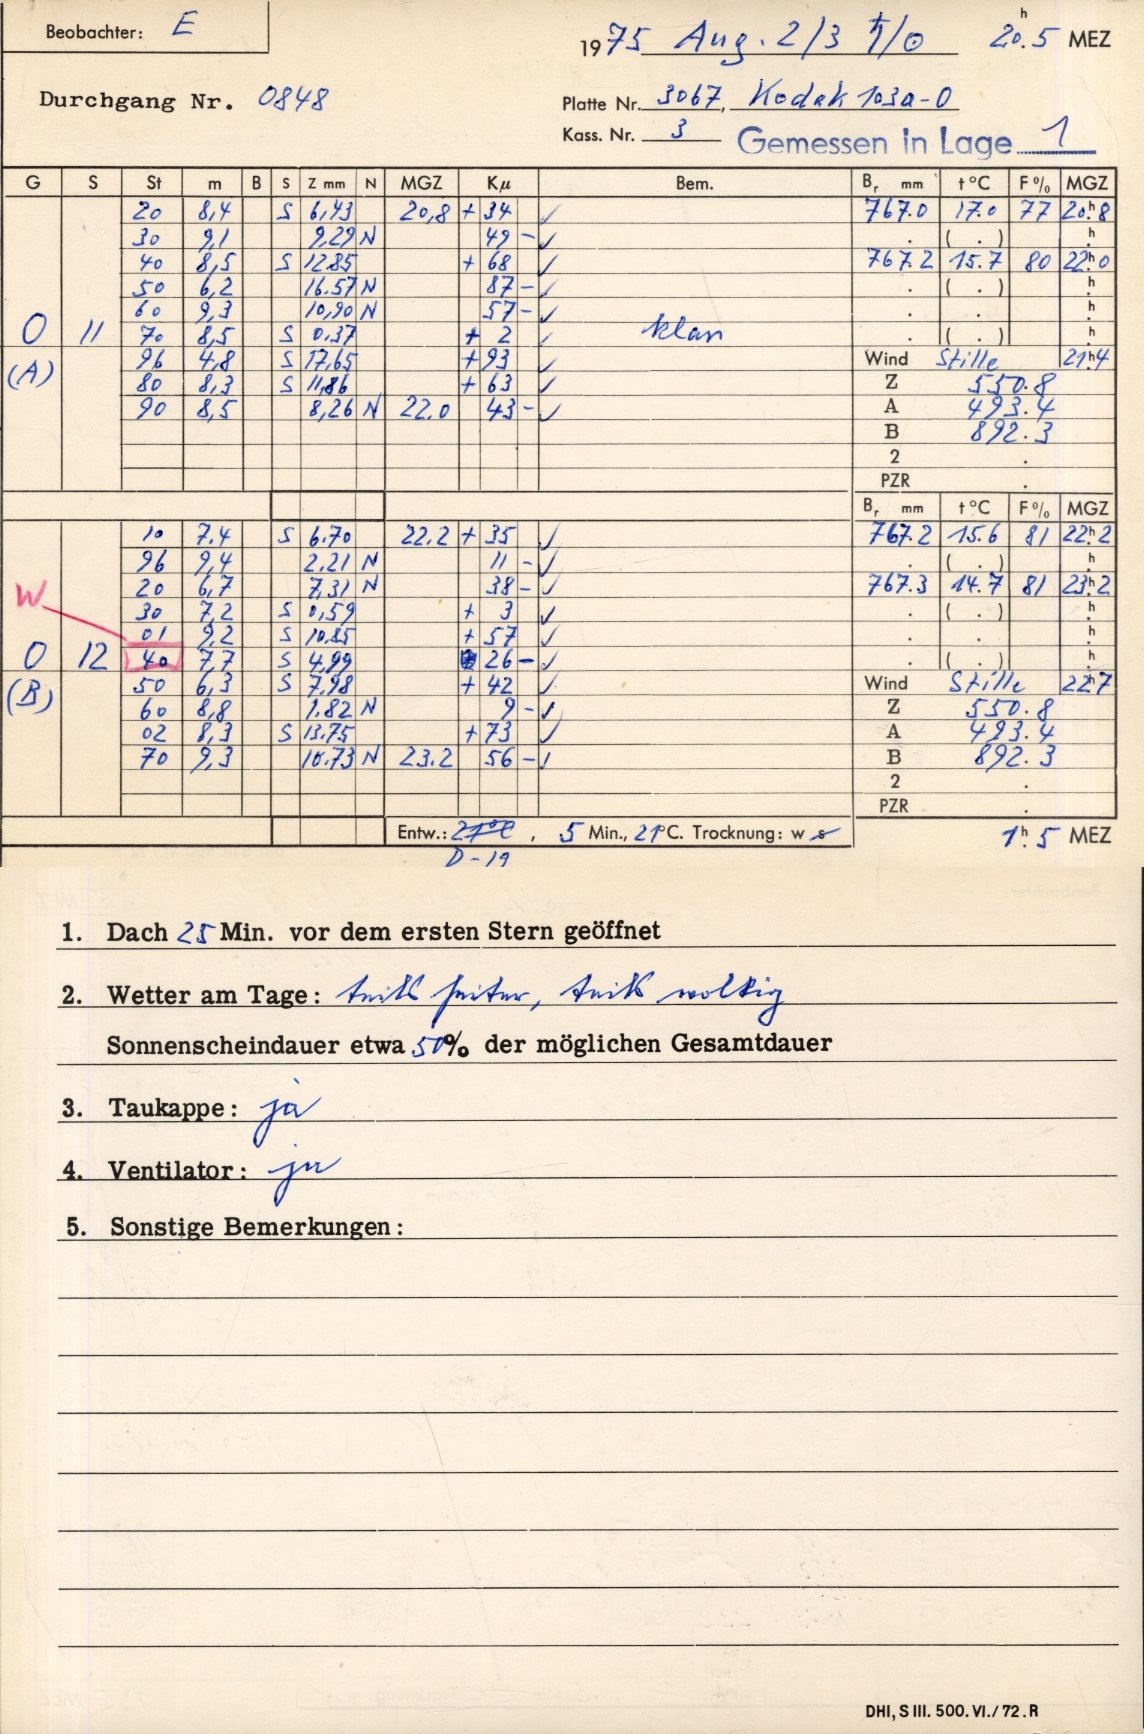 Beobachter: E
1975 Aug. 2/3 ♄/☉ 20h.5 MEZ
Durchgang Nr. 0848
Platte Nr. 3067, Kodak 103a-O
Kass. Nr. 3 Gemessen in Lage 1
G S St m B S Z mm N MGZ Kμ Bem. Br mm t °C F % MGZ
20 8,4 S 6,43 20,8 + 34 ✓ 767.0 17.0 77 20h.8
30 9,1 9,29 N 49 - ✓ . ( . ) h.
40 8,5 S 12.85 + 68 ✓ 767.2 15.7 80 22h.0
50 6,2 16.57 N 87 - ✓ . ( . ) h.
60 9,3 10,90 N 57 - ✓ . . h.
0 11 70 8,5 S 0.37 + 2 ✓ klar . ( . ) h.
(A) 96 4,8 S 17,65 + 93 ✓ Wind Stille 21h.4
80 8,3 S 11,86 + 63 ✓ Z 550.8
90 8,5 8,26 N 22.0 43 - ✓ A 493.4
B 892.3
2 .
PZR .
Br mm t °C F % MGZ
10 7,4 S 6.70 22.2 + 35 ✓ 767.2 15.6 81 22h.2
96 9,4 2,21 N 11 - ✓ . ( . ) h.
20 6,7 7,31 N 38 - ✓ 767.3 14.7 81 23h.2
W 30 7,2 S 0,59 + 3 ✓ . ( . ) h.
01 9,2 S 10.85 + 57 ✓ . . h.
0 12 40 7,7 S 4,99 26 - ✓ . ( . ) h.
(B) 50 6,3 S 7,98 + 42 ✓ Wind Stille 22h.7
60 8,8 1.82 N 9 - ✓ Z 550.8
02 8,3 S 13.75 + 73 ✓ A 493.4
70 9,3 10.73 N 23.2 56 - ✓ B 892.3
2 .
PZR .
Entw.: 21°C, 5 Min., 21°C. Trocknung: w s 1h.5 MEZ
D-19
1. Dach 25 Min. vor dem ersten Stern geöffnet
2. Wetter am Tage: teils heiter, teils wolkig
Sonnenscheindauer etwa 50% der möglichen Gesamtdauer
3. Taukappe: ja
4. Ventilator: ja
5. Sonstige Bemerkungen:
DHI, S III. 500. VI./72. R